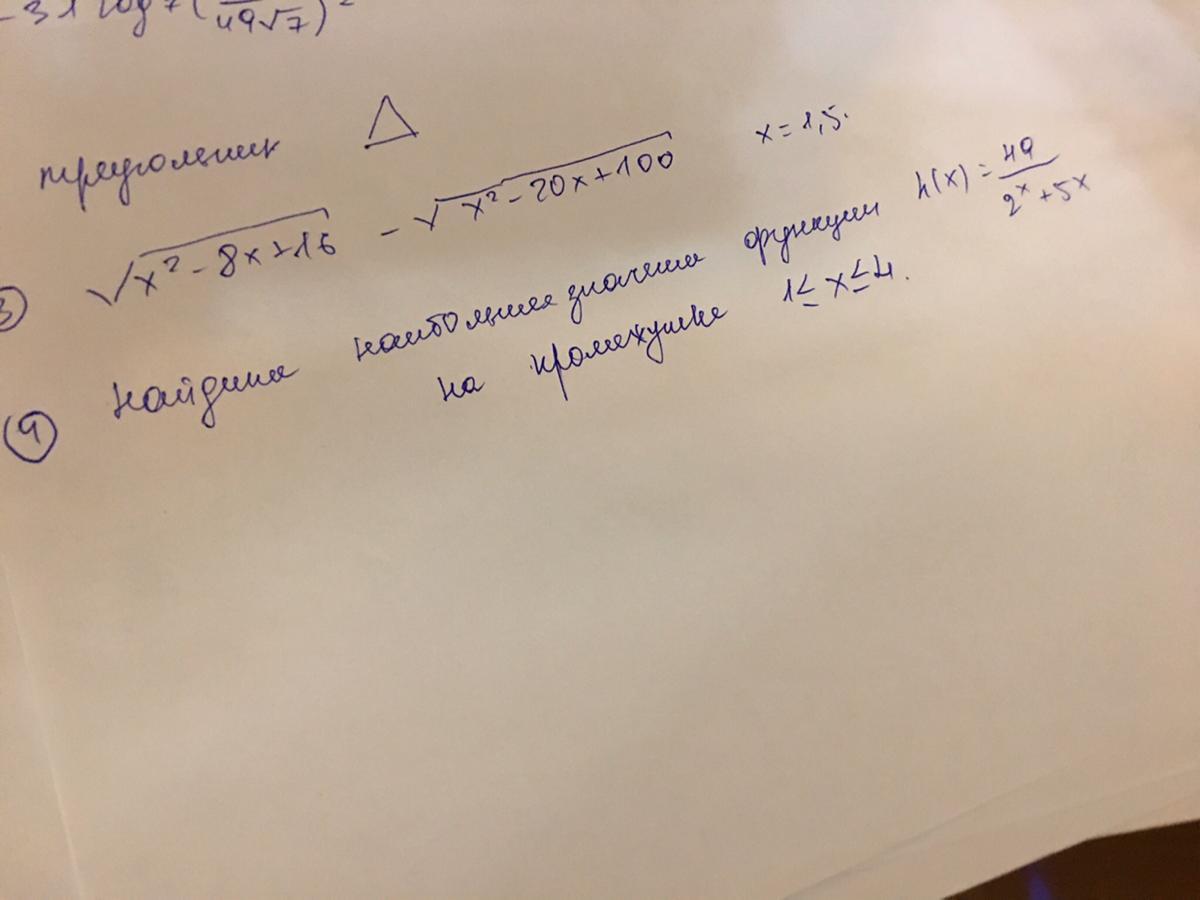 -31 log 7 (49√7)
треугольник Δ
√x² - 8x + 16 - √x² - 20x + 100 x = 1,5.
④ найдите наибольшее значение функции h(x) = 49/(2ˣ + 5x)
на промежутке 1 ≤ x ≤ 4.